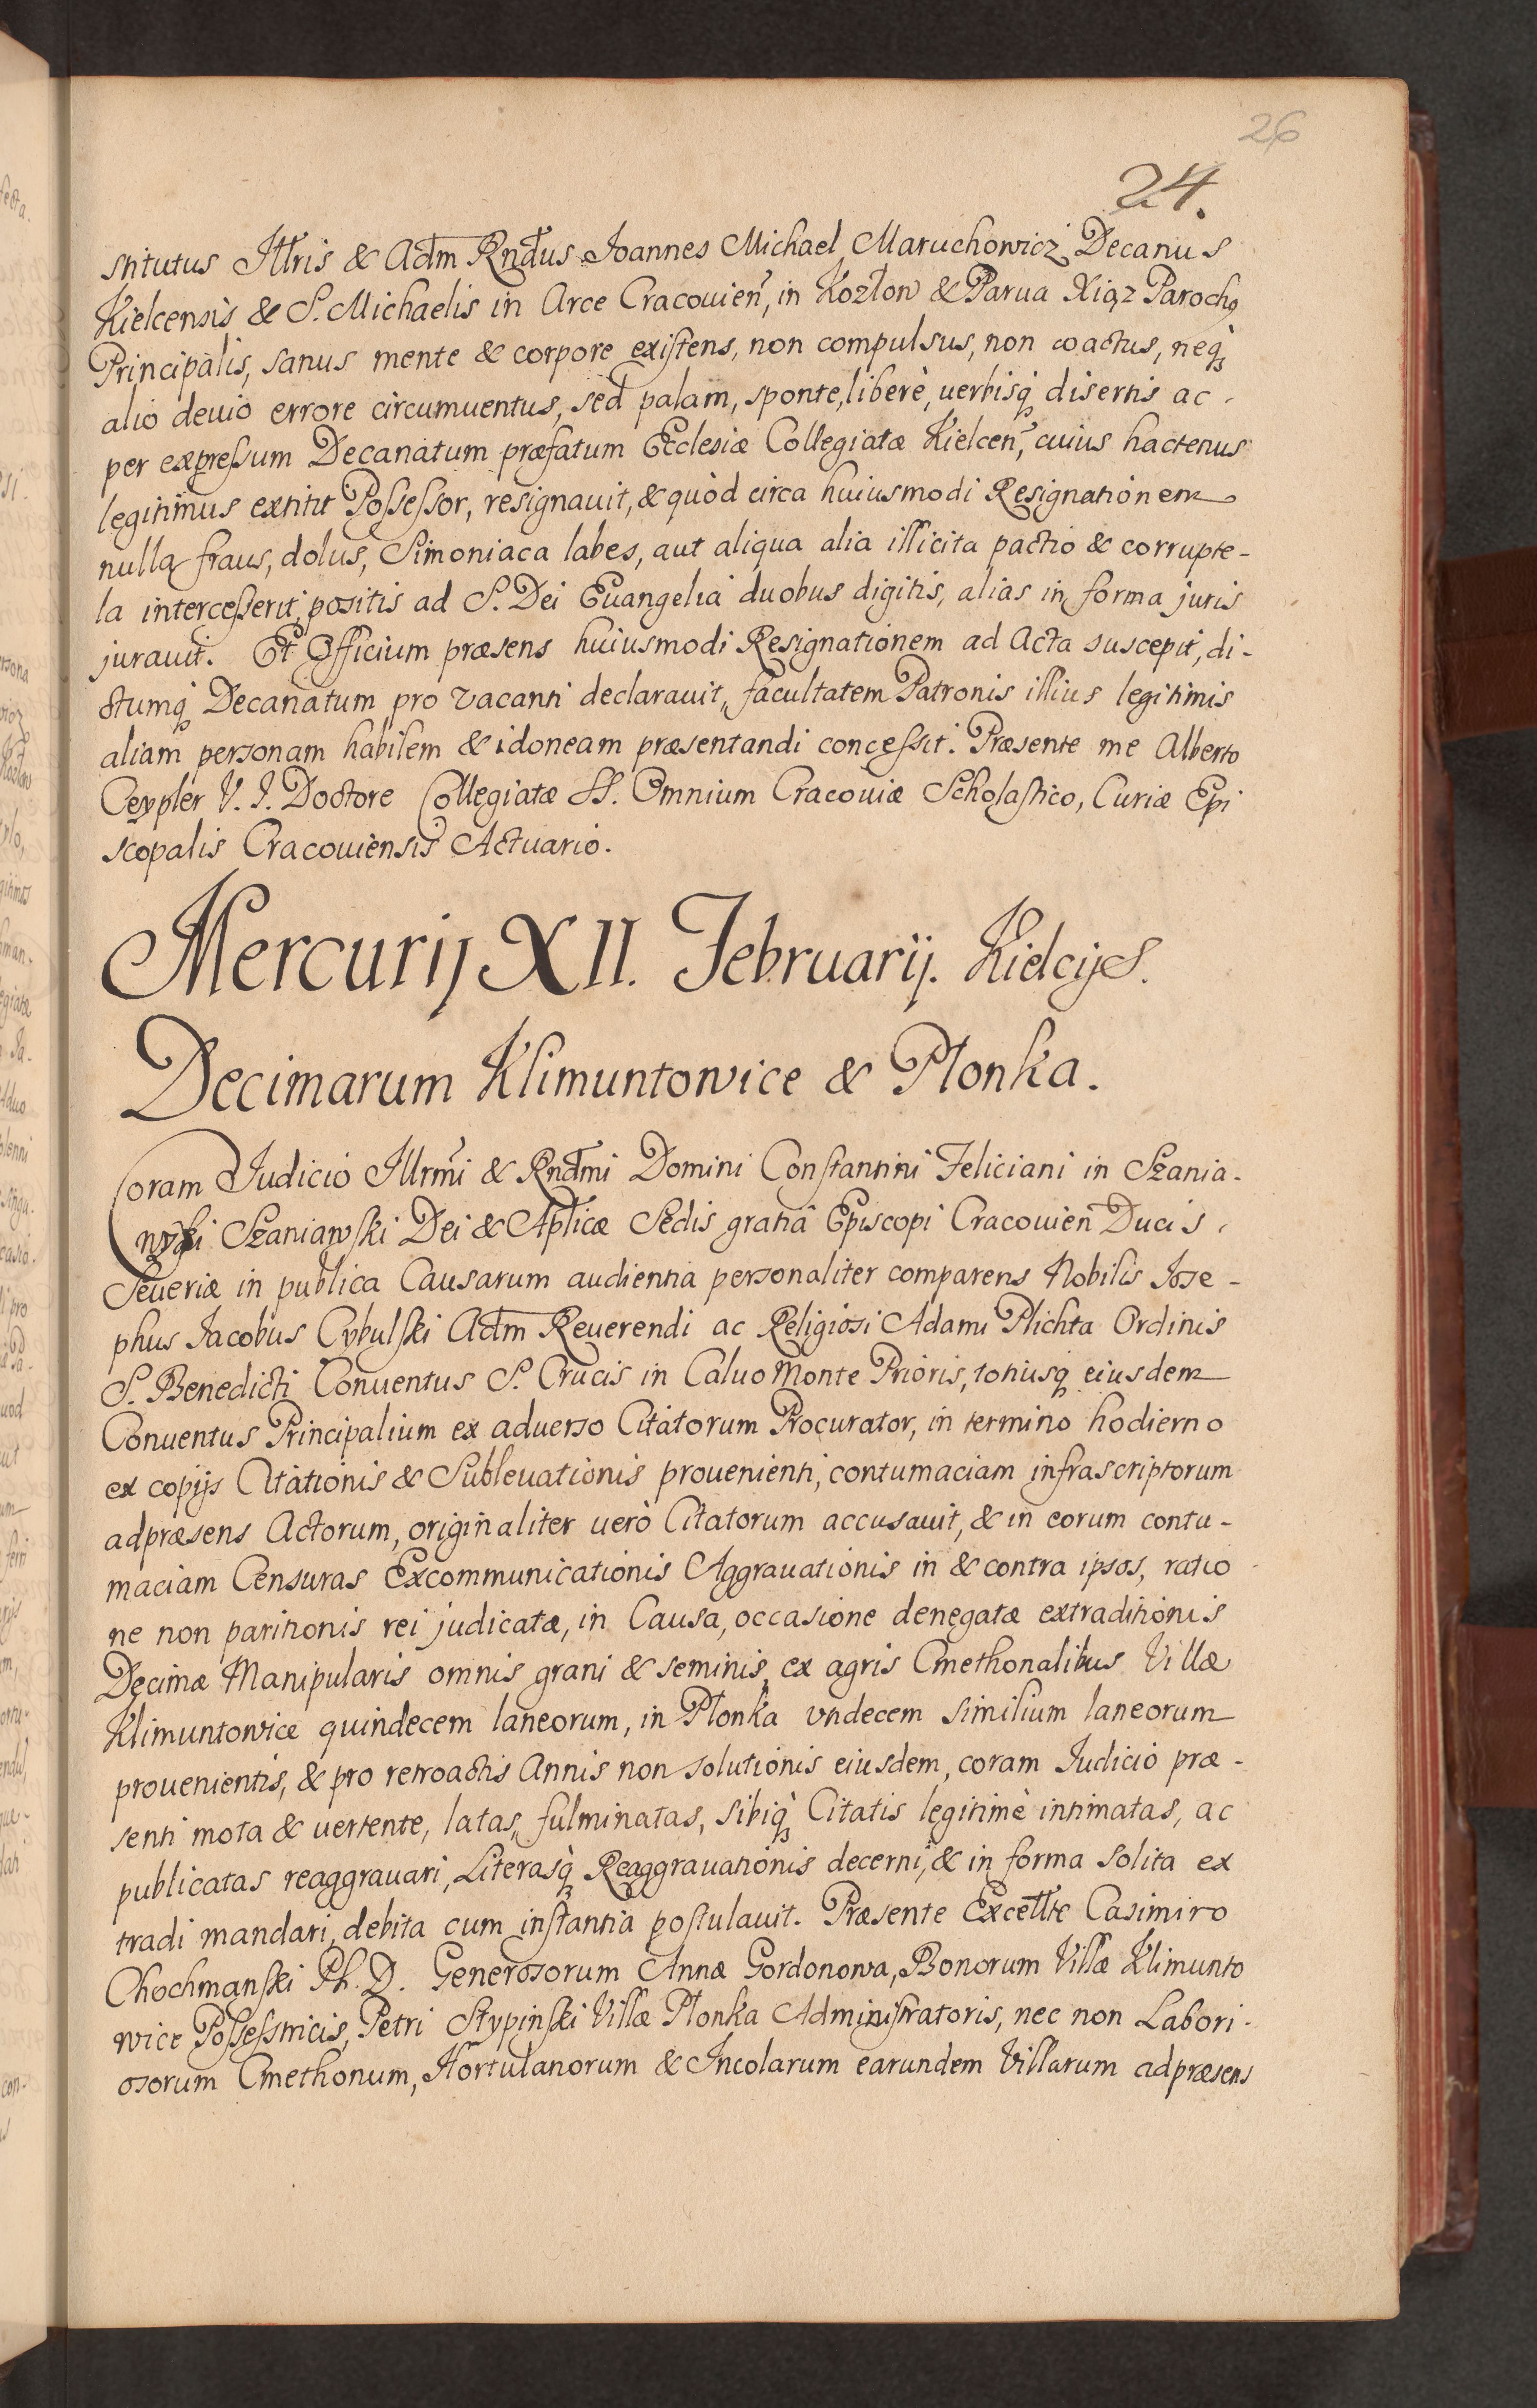 26
24.
stitutus Illris & Adm Rndus Joannes Michael Maruchowicz Decanus
Kielcensis & S. Michaelis in Arce Cracouien, in Kozłow & Parua Xiąz Parochq
Principalis, sanus mente & corpore existens, non compulsus, non coactus, neq,
alio deuio errore circumuentus, sed palam, sponte, liberè, uerbisq disertis ac
per expressum Decanatum præfatum Ecclesiæ Collegiatæ Kielcen, cuius hactenus
legitimus extitit Possessor, resignauit, & quòd circa huiusmodi Resignationem
nulla fraus, dolus, Simoniaca labes, aut aliqua alia illicita pactio & corrupte-
la intercesserit, positis ad S. Dei Euangelia duobus digitis, alias in forma juris
jurauit. Et Officium præsens huiusmodi Resignationem ad Acta suscepit, di-
ctumq Decanatum pro vacanti declarauit, facultatem Patronis illius legitimis
aliam personam habilem & idoneam præsentandi concessit. Præsente me Alberto
Ceypler V. J. Doctore Collegiatæ SS. Omnium Cracouiæ Scholastico, Curiæ Epi
scopalis Cracouiensis Actuario.
Mercurij XII. Februarij. Kielcijs.
Decimarum Klimuntowice & Płonka.
Coram Judicio Illrmi & Rndmi Domini Constantini Feliciani in Szania-
wyski Szaniawski Dei & Aplicæ Sedis gratiâ Episcopi Cracouien Ducis
Seueriæ in publica Causarum audientia personaliter comparens Nobilis Jose-
phus Jacobus Cybulski Adm Reuerendi ac Religiosi Adami Plichta Ordinis
S. Benedicti Conuentus S. Crucis in Caluo Monte Prioris, totiusq eiusdem
Conuentus Principalium ex aduerso Citatorum Procurator, in termino hodierno
ex copijs Citationis & Subleuationis prouenienti, contumaciam infrascriptorum
adpræsens Actorum, originaliter uerò Citatorum accusauit, & in eorum contu-
maciam Censuras Excommunicationis Aggrauationis in & contra ipsos, ratio
ne non paritionis rei judicatæ, in Causa, occasione denegatæ extraditionis
Decimæ Manipularis omnis grani & seminis, ex agris Cmethonalibus Villæ
Klimuntowice quindecem laneorum, in Płonka vndecem similium laneorum
prouenientis, & pro retroactis Annis non solutionis eiusdem, coram Judicio præ-
senti mota & uertente, latas, fulminatas, sibiq Citatis legitimè intimatas, ac
publicatas reaggrauari, Literasq Reaggrauationis decerni, & in forma solita ex
tradi mandari, debita cum instantia postulauit. Præsente Excellte Casimiro
Chochmanski Ph. D. Generosorum Annæ Gordonowa, Bonorum Villæ Klimunto
wice Possessricis, Petri Stypinski Villæ Płonka Administratoris, nec non Labori-
osorum Cmethonum, Hortulanorum & Incolarum earundem Villarum adpræsens